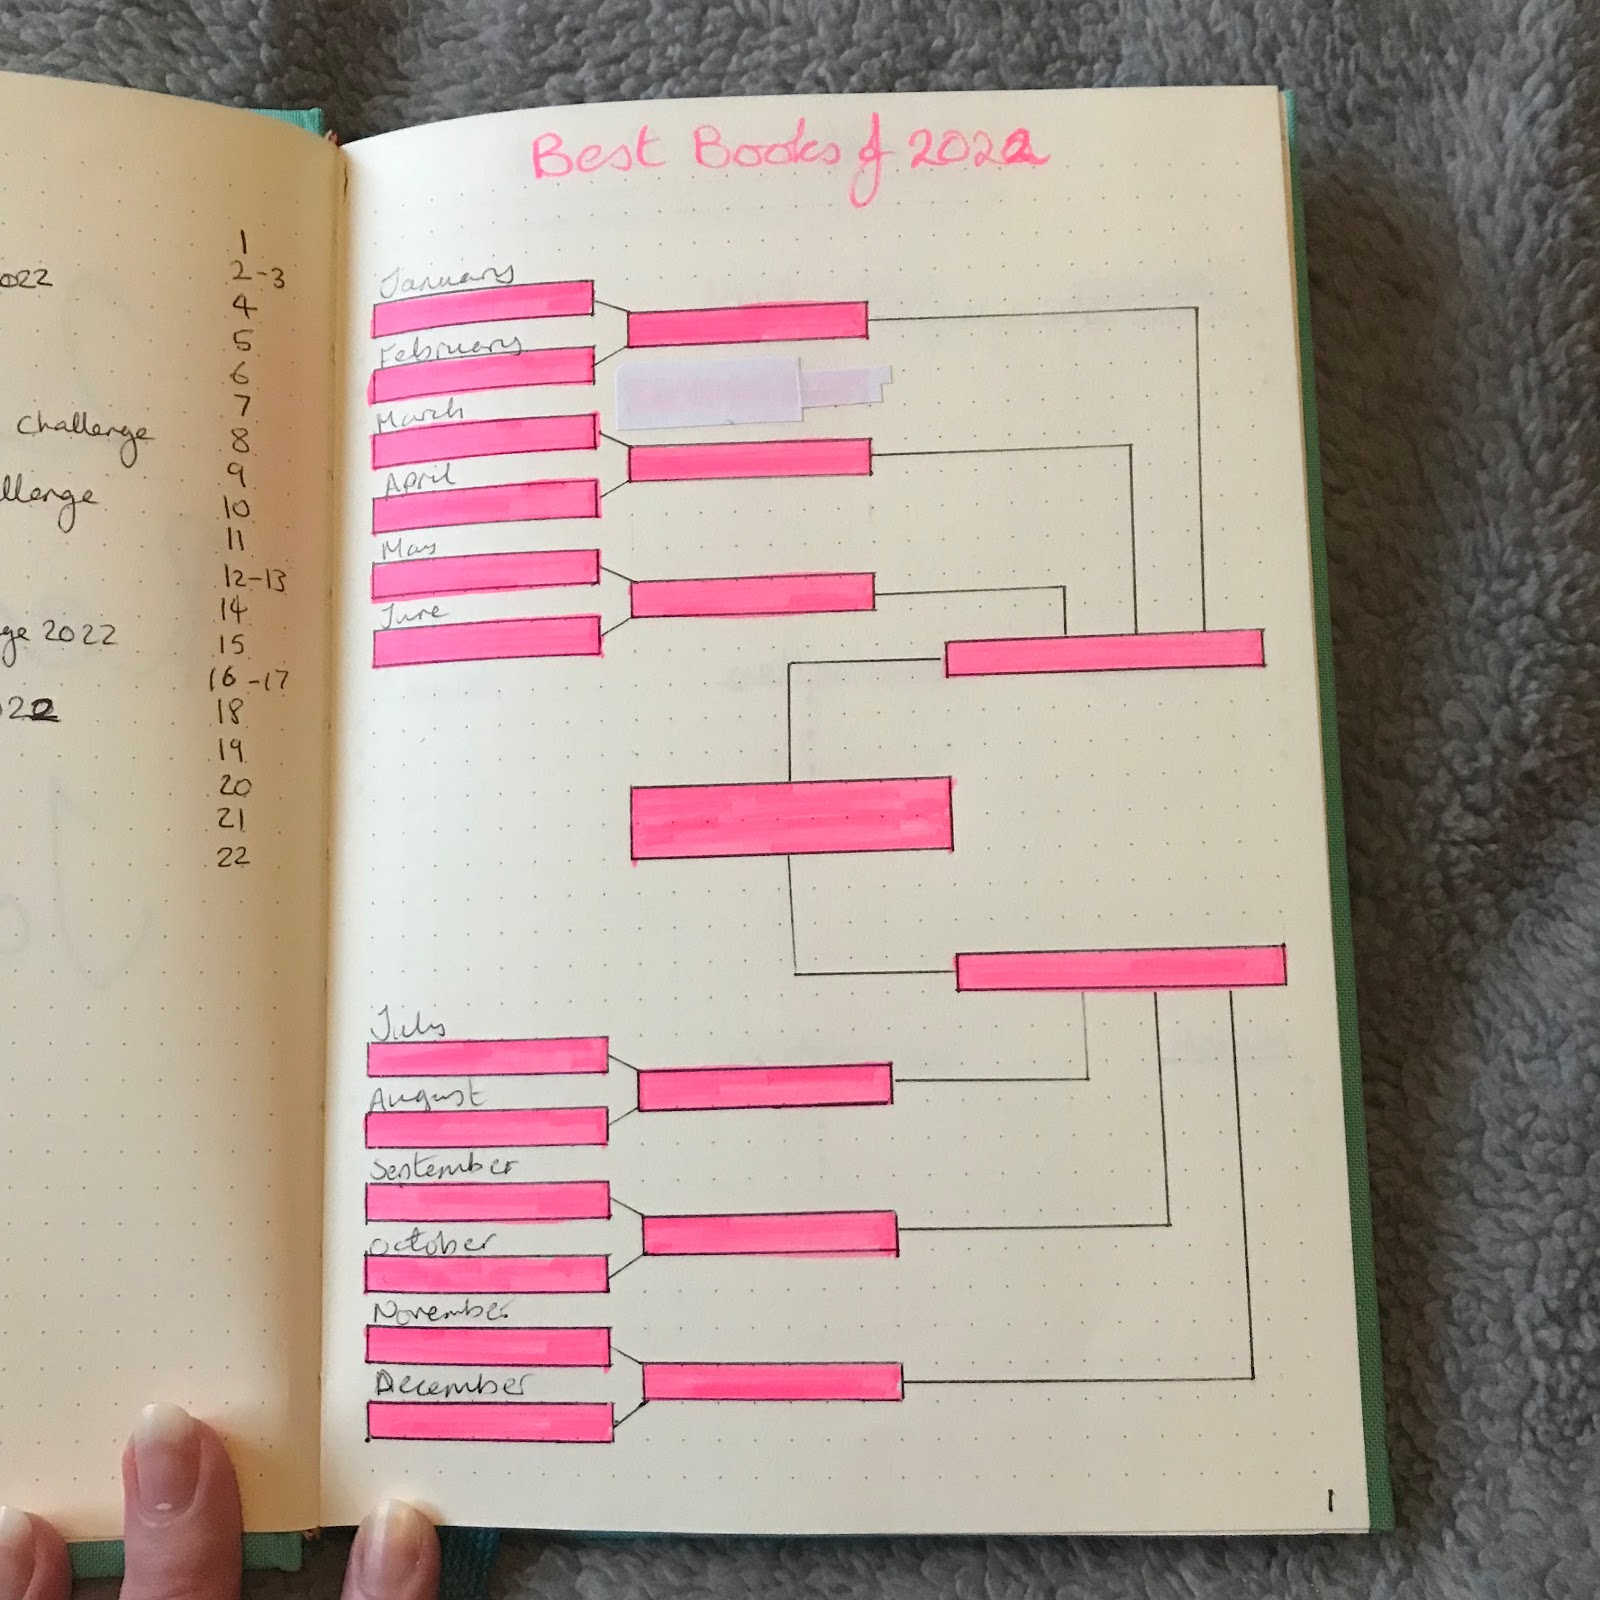 1
2-3
2022
4
5
6
7
challenge
8
9
llenge
10
11
12-13
14
ge 2022
15
16-17
2022
18
19
20
21
22
Best Books of 2022
January
February
March
April
May
June
July
August
September
October
November
December
1